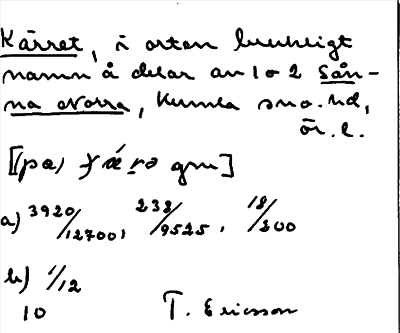 Kärret, i orten brukligt
namn å delar av 1 o 2 Sån-
na Norra, Kumla sn o. hd,
Ör. l.
[(på) gm]
a) 3920/12700, 238/9525, 18/300
b) 1/12
10 T. Ericsson